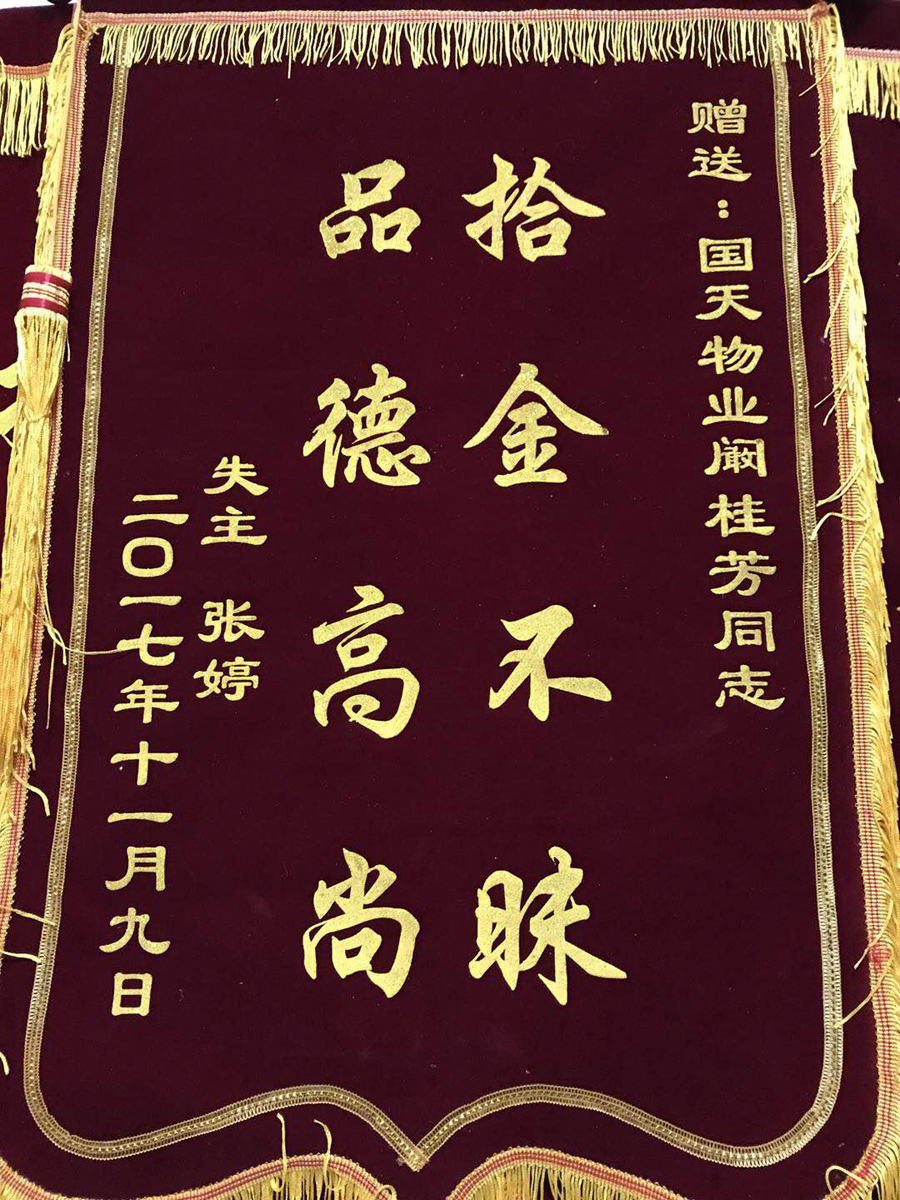 赠送：国天物业阚桂芳同志
拾金不昧
品德高尚
失主 张婷
二〇一七年十一月九日